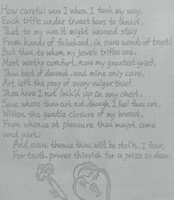 How careful was I when I took my way,
Each trifle under truest bars to thrust,
That to my use it might unused stay
From hands of falsehood, in sure wards of trust!
But thou, to whom my jewels trifles are,
Most worthy comfort, now my greatest grief,
Thou best of dearest, and mine only care,
Art left the prey of every vulgar thief.
Thee have I not lock'd up in any chest,
Save where thou art not, though I feel thou art,
Within the gentle closure of my breast,
From whence at pleasure thou mayst come
and part;
And even thence thou wilt be stol'n, I fear,
For truth proves thievish for a prize so dear.